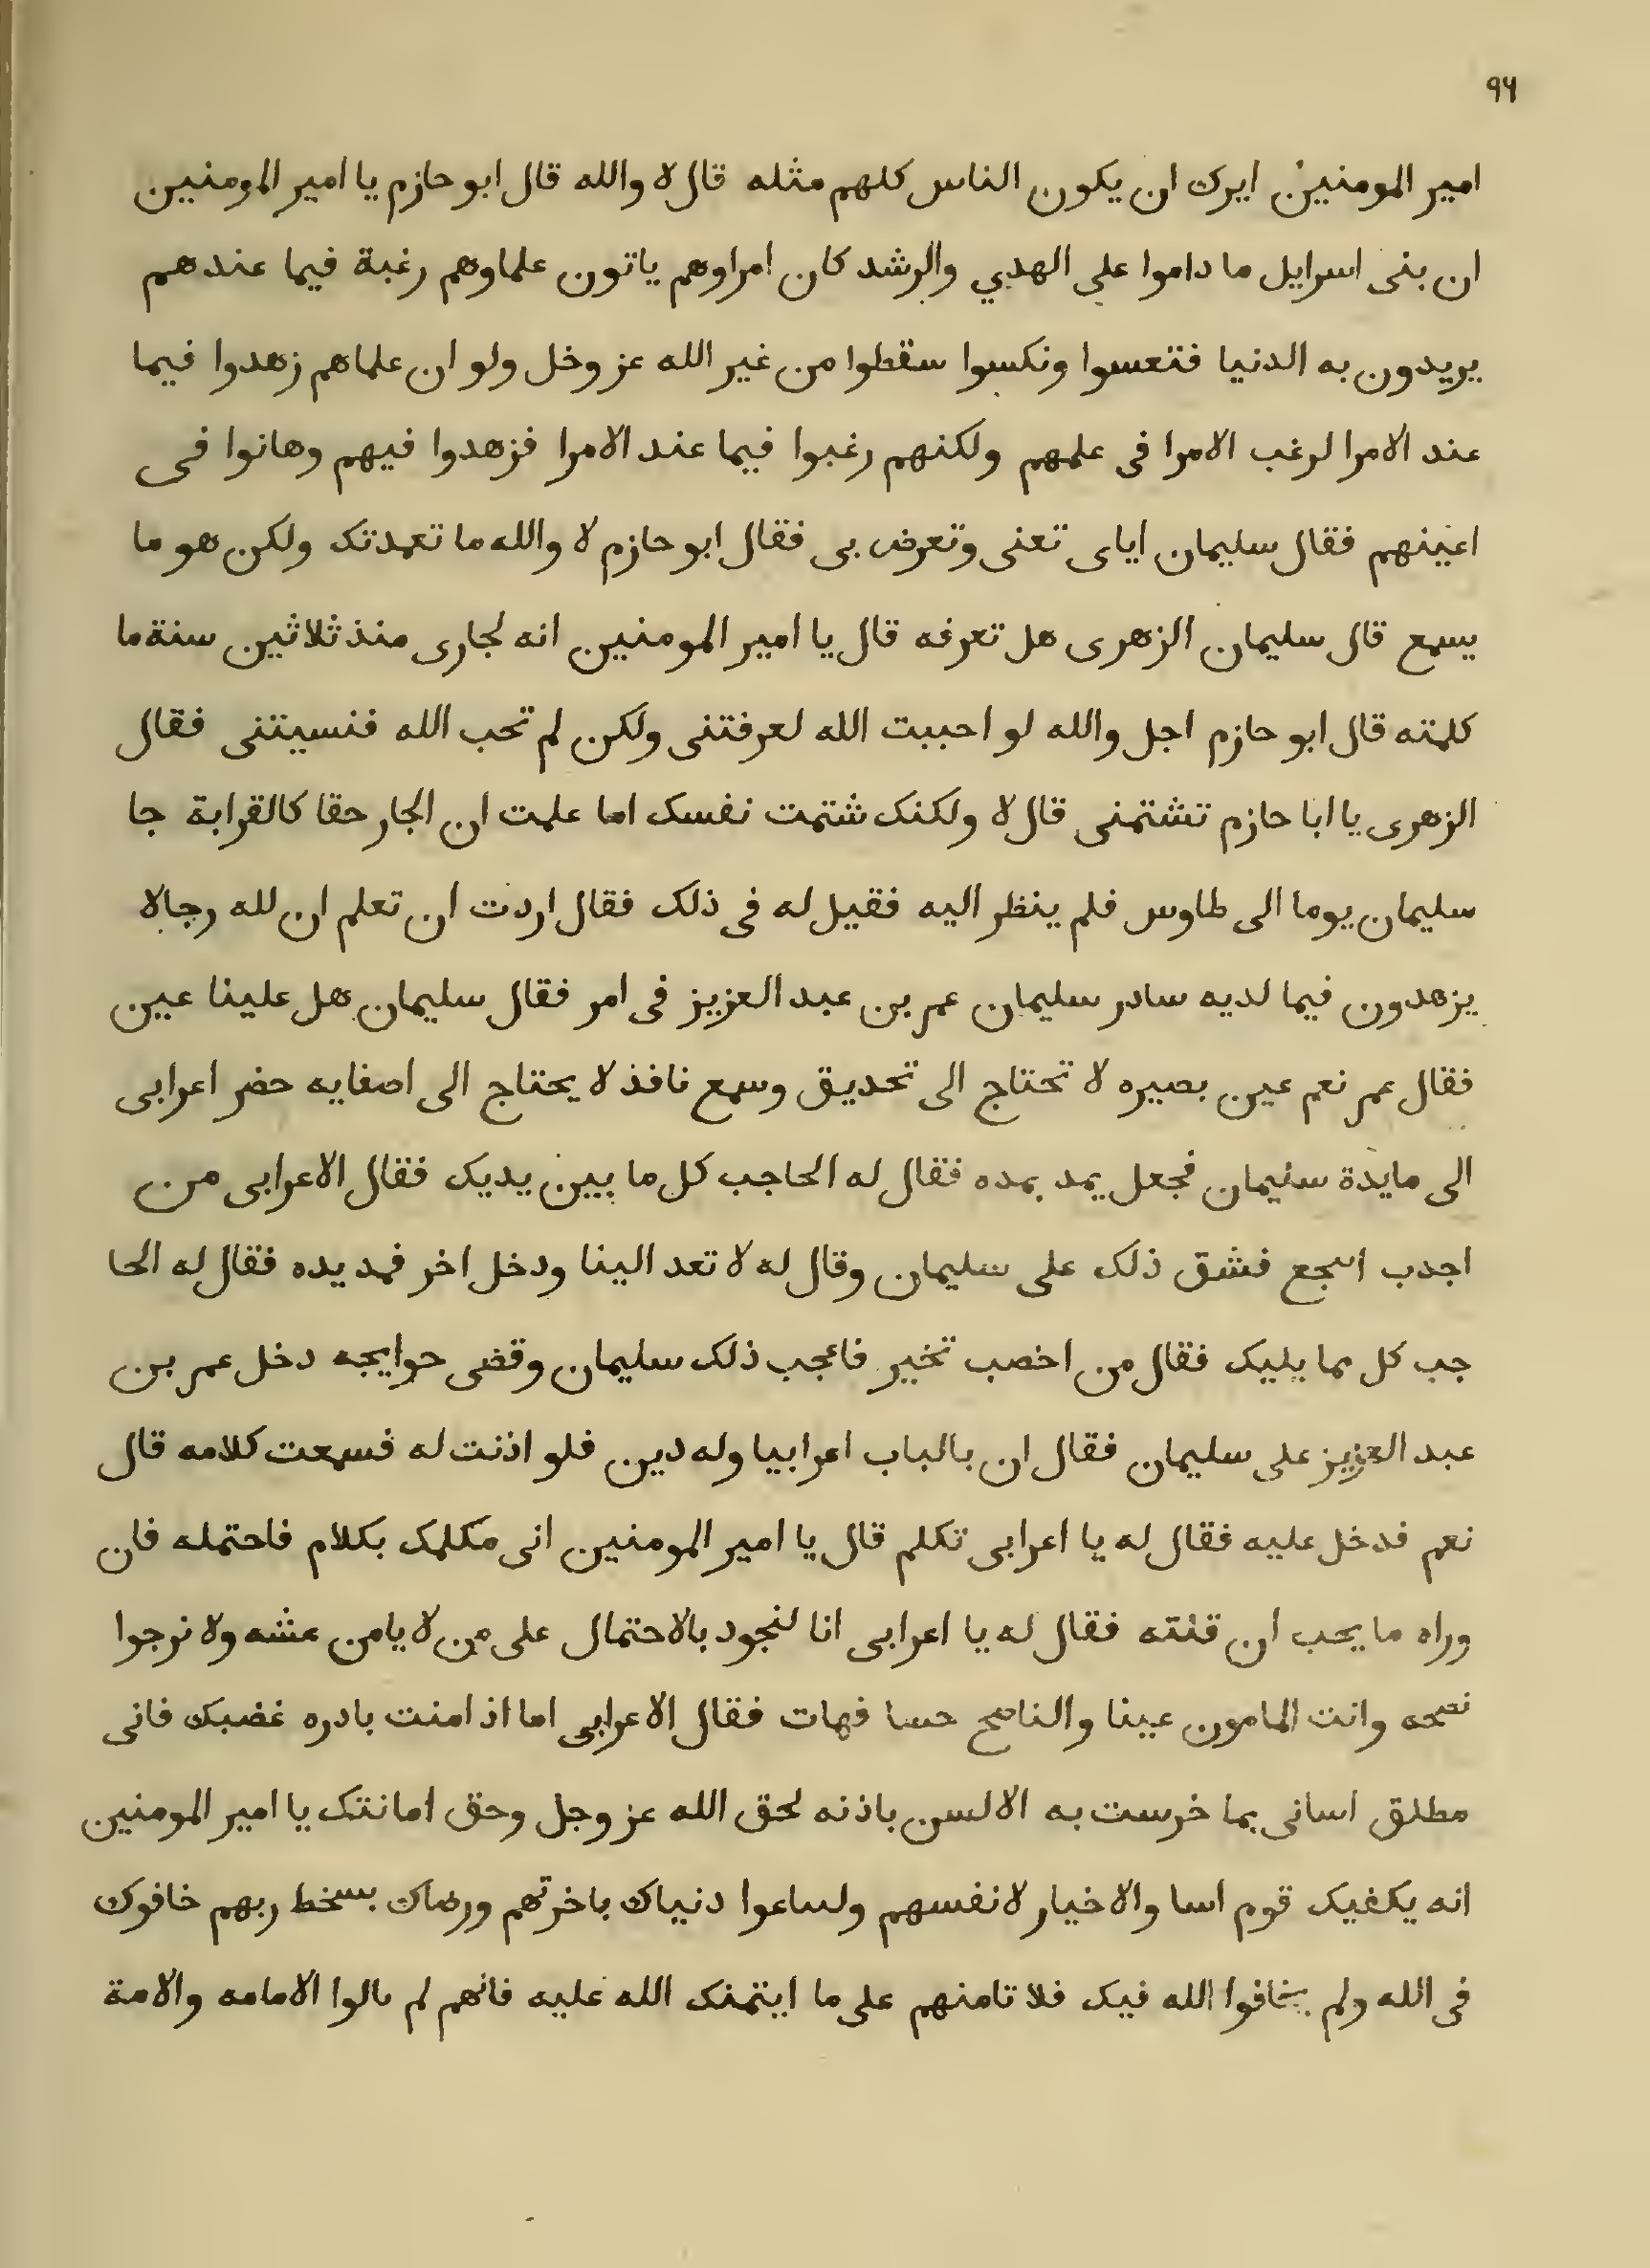 ٩٦
امير المومنين ايرك ان يكون الناس كلهم مثله قال لا والله قال ابو حازم يا امير المومنين
ان بنى اسرايل ما داموا على الهدي والرشد كان امراوهم ياتون علماوهم رغبة فيما عندهم
يريدون به الدنيا فتعسوا ونكسوا سقطوا من غير الله عز وخل ولو ان علماهم زهدوا فيما
عند الامرا لرغب الامرا فى علمهم ولكنهم رغبوا فيما عند الامرا فزهدوا فيهم وهانوا فى
اعينهم فقال سليمان اياى تعنى وتعرض بى فقال ابو حازم لا والله ما تعمدتك ولكن هو ما
يسمع قال سليمان الزهرى هل تعرفه قال يا امير المومنين انه لجارى منذ ثلاثين سنة ما
كلمته قال ابو حازم اجل والله لو احببت الله لعرفتنى ولكن لم تحب الله فنسيتنى فقال
الزهرى يا ابا حازم تشتمنى قال لا ولكنك شتمت نفسك اما علمت ان الجار حقا كالقرابة جا
سليمان يوما الى طاوس فلم ينظر اليه فقيل له فى ذلك فقال اردت ان تعلم ان لله رجالا
يزهدون فيما لديه سادر سليمان عمر بن عبد العزيز فى امر فقال سليمان هل علينا عين
فقال عمر نعم عين بصيره لا تحتاج الى تحديق وسمع نافذ لا يحتاج الى اصغايه حضر اعرابى
الى مايدة سليمان فجعل يمد يمده فقال له الحاجب كل ما بين يديك فقال الاعرابى من
اجدب اسجع فشق ذلك على سليمان وقال له لا تعد الينا ودخل اخر فمد يده فقال له الحا
جب كل مما يليك فقال من اخصب تخير فاعجب ذلك سليمان وقضى حوايجه دخل عمر بن
عبد العزيز على سليمان فقال ان بالباب اعرابيا وله دين فلو اذنت له فسمعت كلامه قال
نعم فدخل عليه فقال له يا اعرابى تكلم قال يا امير المومنين انى مكلمك بكلام فاحتمله فان
وراه ما يحب ان قلته فقال له يا اعرابى انا لنجود بالاحتمال على من لا يامن عشه ولا نرجوا
نصحه وانت المامون عينا والناصح حسا فهات فقال الاعرابى اما اذ امنت بادره غضبك فانى
مطلق لسانى بما خرست به الالسن باذنه لحق الله عز وجل وحق امانتك يا امير المومنين
انه يكفيك قوم اسا والاخيار لانفسهم ولساعوا دنياك باخرتهم ورضاك بسخط ربهم خافوك
فى الله ولم يخافوا الله فيك فلا تامنهم على ما ايتمنك الله عليه فانهم لم بالوا الامامه والامة